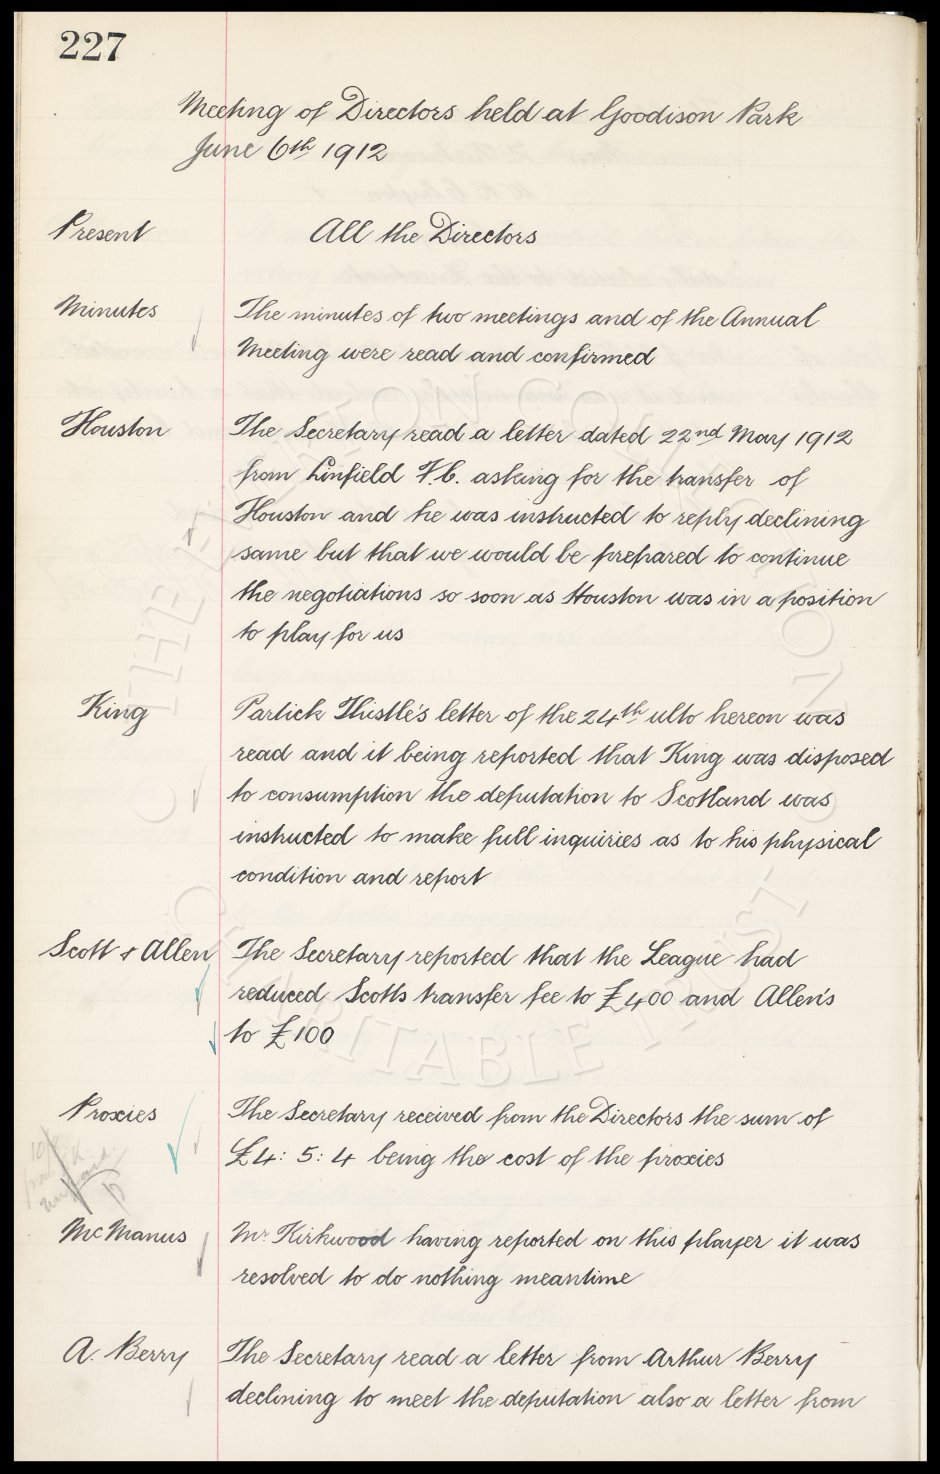 227
Meeting of Directors held at Goodison Park
June 6th 1912
Present
All the Directors
Minutes
The minutes of two meetings and of the Annual
Meeting were read and confirmed
Houston
The Secretary read a letter dated 22nd May 1912
from Linfield F.C. asking for the transfer of
Houston and he was instructed to reply declining
same but that we would be prepared to continue
the negotiations so soon as Houston was in a position
to play for us
King
Partick Thistle's letter of the 24th ulto hereon was
read and it being reported that King was disposed
to consumption the deputation to Scotland was
instructed to make full inquiries as to his physical
condition and report
Scott & Allen
The Secretary reported that the League had
reduced Scotts transfer fee to £400 and Allen's
to £100
Proxies
The Secretary received from the Directors the sum of
£4: 5: 4 being the cost of the proxies
McManus
Mr Kirkwood having reported on this player it was
resolved to do nothing meantime
A. Berry
The Secretary read a letter from Arthur Berry
declining to meet the deputation also a letter from
© THE EVERTON COLLECTION
CHARITABLE TRUST ©